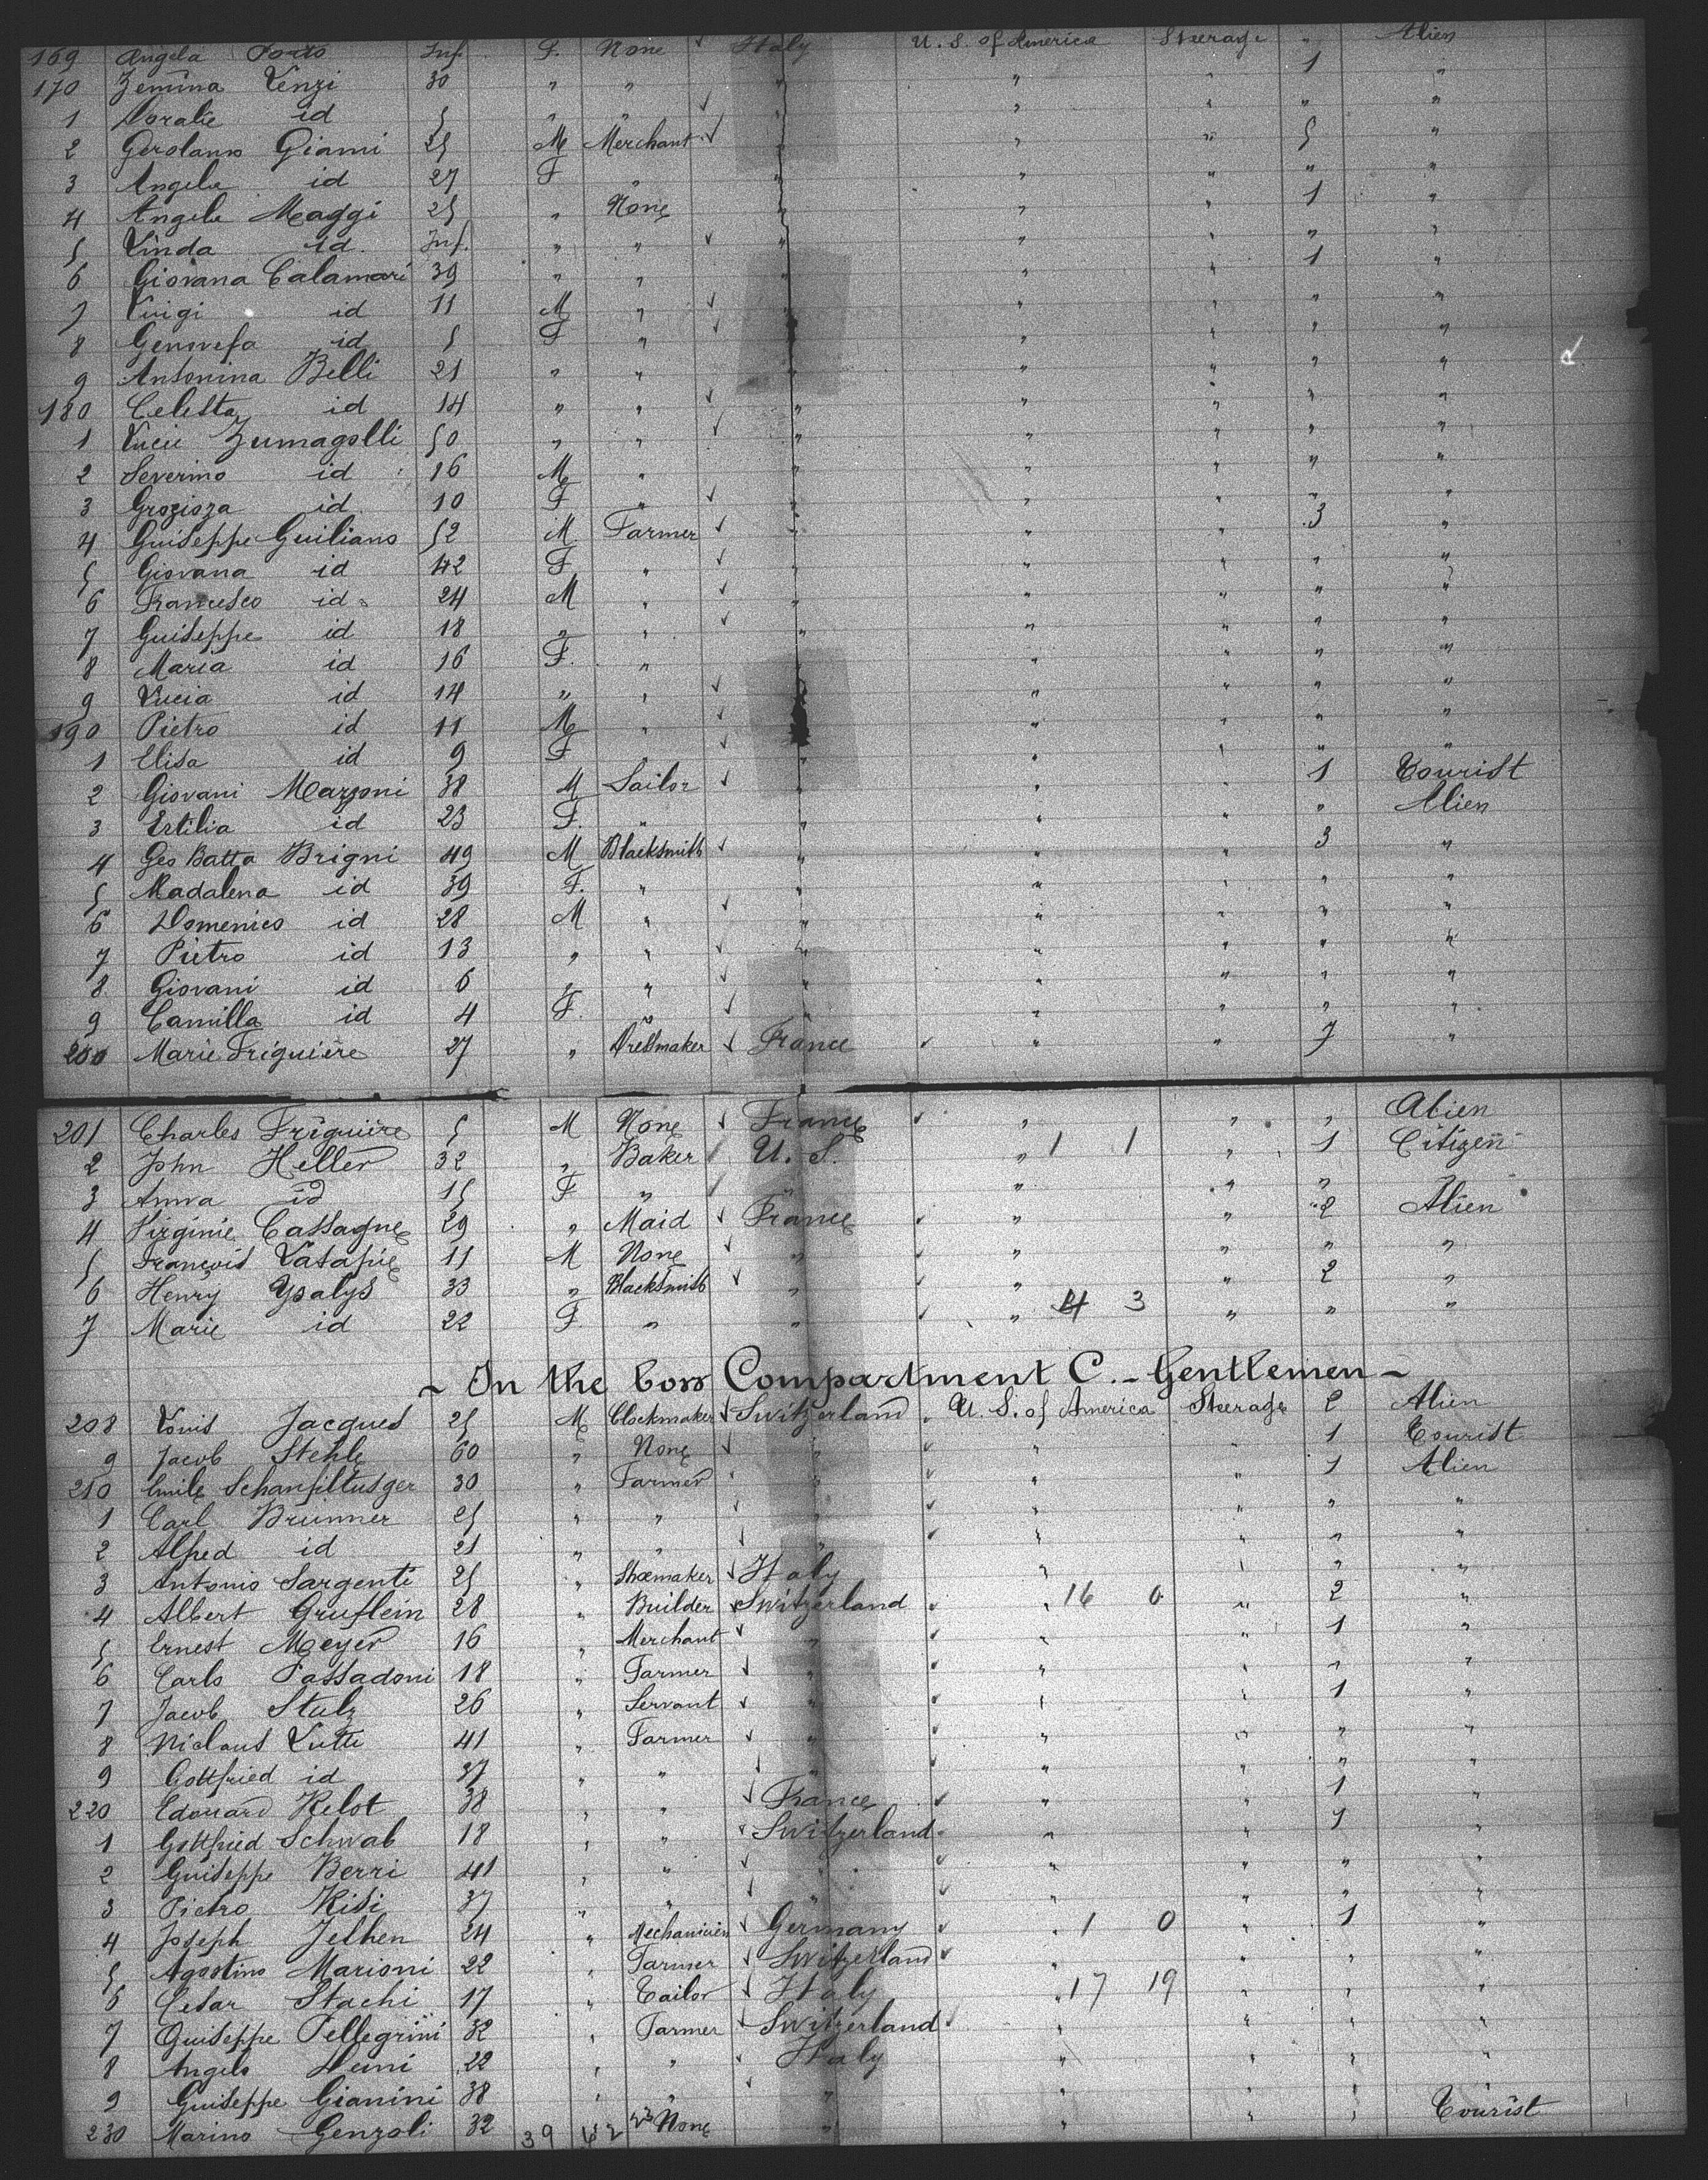 169 Angela Porto Inf. F. None ✓ Italy U. S. of America Steerage " Alien
170 Zemina Lenzi 30 " " " " " 1 "
1 Doralie id 5 " " ✓ " " " " "
2 Gerolamo Gianni 25 M Merchant ✓ " " " 5 "
3 Angela id 27 F " " " " " "
4 Angela Maggi 25 " None " " " 1 "
5 Linda id Inf. " " ✓ " " " " "
6 Giovana Calamari 39 " " " " " 1 "
7 Luigi id 11 M " ✓ " " " "
8 Genovefa id 5 F " ✓ " " " "
9 Antonina Belli 21 " " " " " "
180 Celesta id 14 " " ✓ " " " " "
1 Lucie Zumagolli 50 " " ✓ " " " " "
2 Severino id 16 M " " " " " "
3 Grozioza id 10 F " ✓ " " " " "
4 Guiseppe Guiliano 52 M. Farmer ✓ " " " 3 "
5 Giovana id 42 F " ✓ " " " " "
6 Francesco id 24 M " ✓ " " " " "
7 Guiseppe id 18 " " ✓ " " " " "
8 Maria id 16 F. " " " " "
9 Lucia id 14 " " ✓ " " " "
190 Pietro id 11 M " ✓ " " " "
1 Elisa id 9 F " ✓ " " " " "
2 Giovani Marzoni 38 M Sailor ✓ " " " 1 Tourist
3 Ertilia id 23 F. " " " " " Alien
4 Geo Batta Brigni 49 M Blacksmith ✓ " " " 3 "
5 Madalena id 39 F. " " " " " "
6 Domenico id 28 M " ✓ " " " " "
7 Pietro id 13 " " ✓ " " " " "
8 Giovani id 6 " " ✓ " " " " "
9 Camilla id 4 F. " ✓ " " " " "
200 Marie Friguière 27 " Dressmaker ✓ France ✓ " " 7 "
201 Charles Friguière 5 M None ✓ France ✓ " " " Alien
2 John Heller 32 " Baker / U. S. " 1 1 " 1 Citizen
3 Anna id 15 F " / " " " " "
4 Virginie Cassagne 29 " Maid ✓ France ✓ " " 2 Alien
5 François Latapie 11 M None ✓ " ✓ " " " "
6 Henry Ysalys 33 " Blacksmith ✓ " ✓ " " 2 "
7 Marie id 22 F " " ✓ " 4 3 " " "
~ In the box Compartment C. - Gentlemen ~
208 Louis Jacques 25 M Clockmaker ✓ Switzerland " U. S. of America Steerage 2 Alien
9 Jacob Stehle 60 " None ✓ " ✓ " " 1 Tourist
210 Emile 30 " Farmer " ✓ " " 1 Alien
1 Carl Brunner 25 " " ✓ " ✓ " " " "
2 Alfred id 21 " " ✓ " ✓ " " " "
3 Antonio Sargenti 25 " Shoemaker ✓ Italy " " " "
4 Albert Gruflein 28 " Builder ✓ Switzerland ✓ " 16 0 " 2 "
5 Ernest Meyer 16 " Merchant ✓ " ✓ " " 1 "
6 Carlo Passadoni 18 " Farmer ✓ " ✓ " " " "
7 Jacob Stulz 26 " Servant ✓ " ✓ " " 1 "
8 Niclaus Lutti 41 " Farmer ✓ " ✓ " " " "
9 Gottfried id 37 " " ✓ " ✓ " " " "
220 Edouard Kelot 38 " " ✓ France ✓ " " 1 "
1 Gottfried Schwab 18 " " ✓ Switzerland " " " 1 "
2 Guiseppe Berri 41 " " ✓ " ✓ " " " "
3 Pietro Risi 37 " " ✓ " ✓ " " " "
4 Joseph Jelhen 24 " Mechanicien ✓ Germany ✓ " 1 0 " 1 "
5 Agostino Marioni 22 " Farmer ✓ Switzerland ✓ " " " "
6 Cesar Stachi 17 " Tailor ✓ Italy " 17 19 " " "
7 Guiseppe Pellegrini 32 " Farmer ✓ Switzerland ✓ " " " "
8 Angelo 22 " " ✓ Italy " " " "
9 Guiseppe Gianini 38 " " ✓ " " " " "
230 Marino Genzoli 32 39 42 None " " " " Tourist